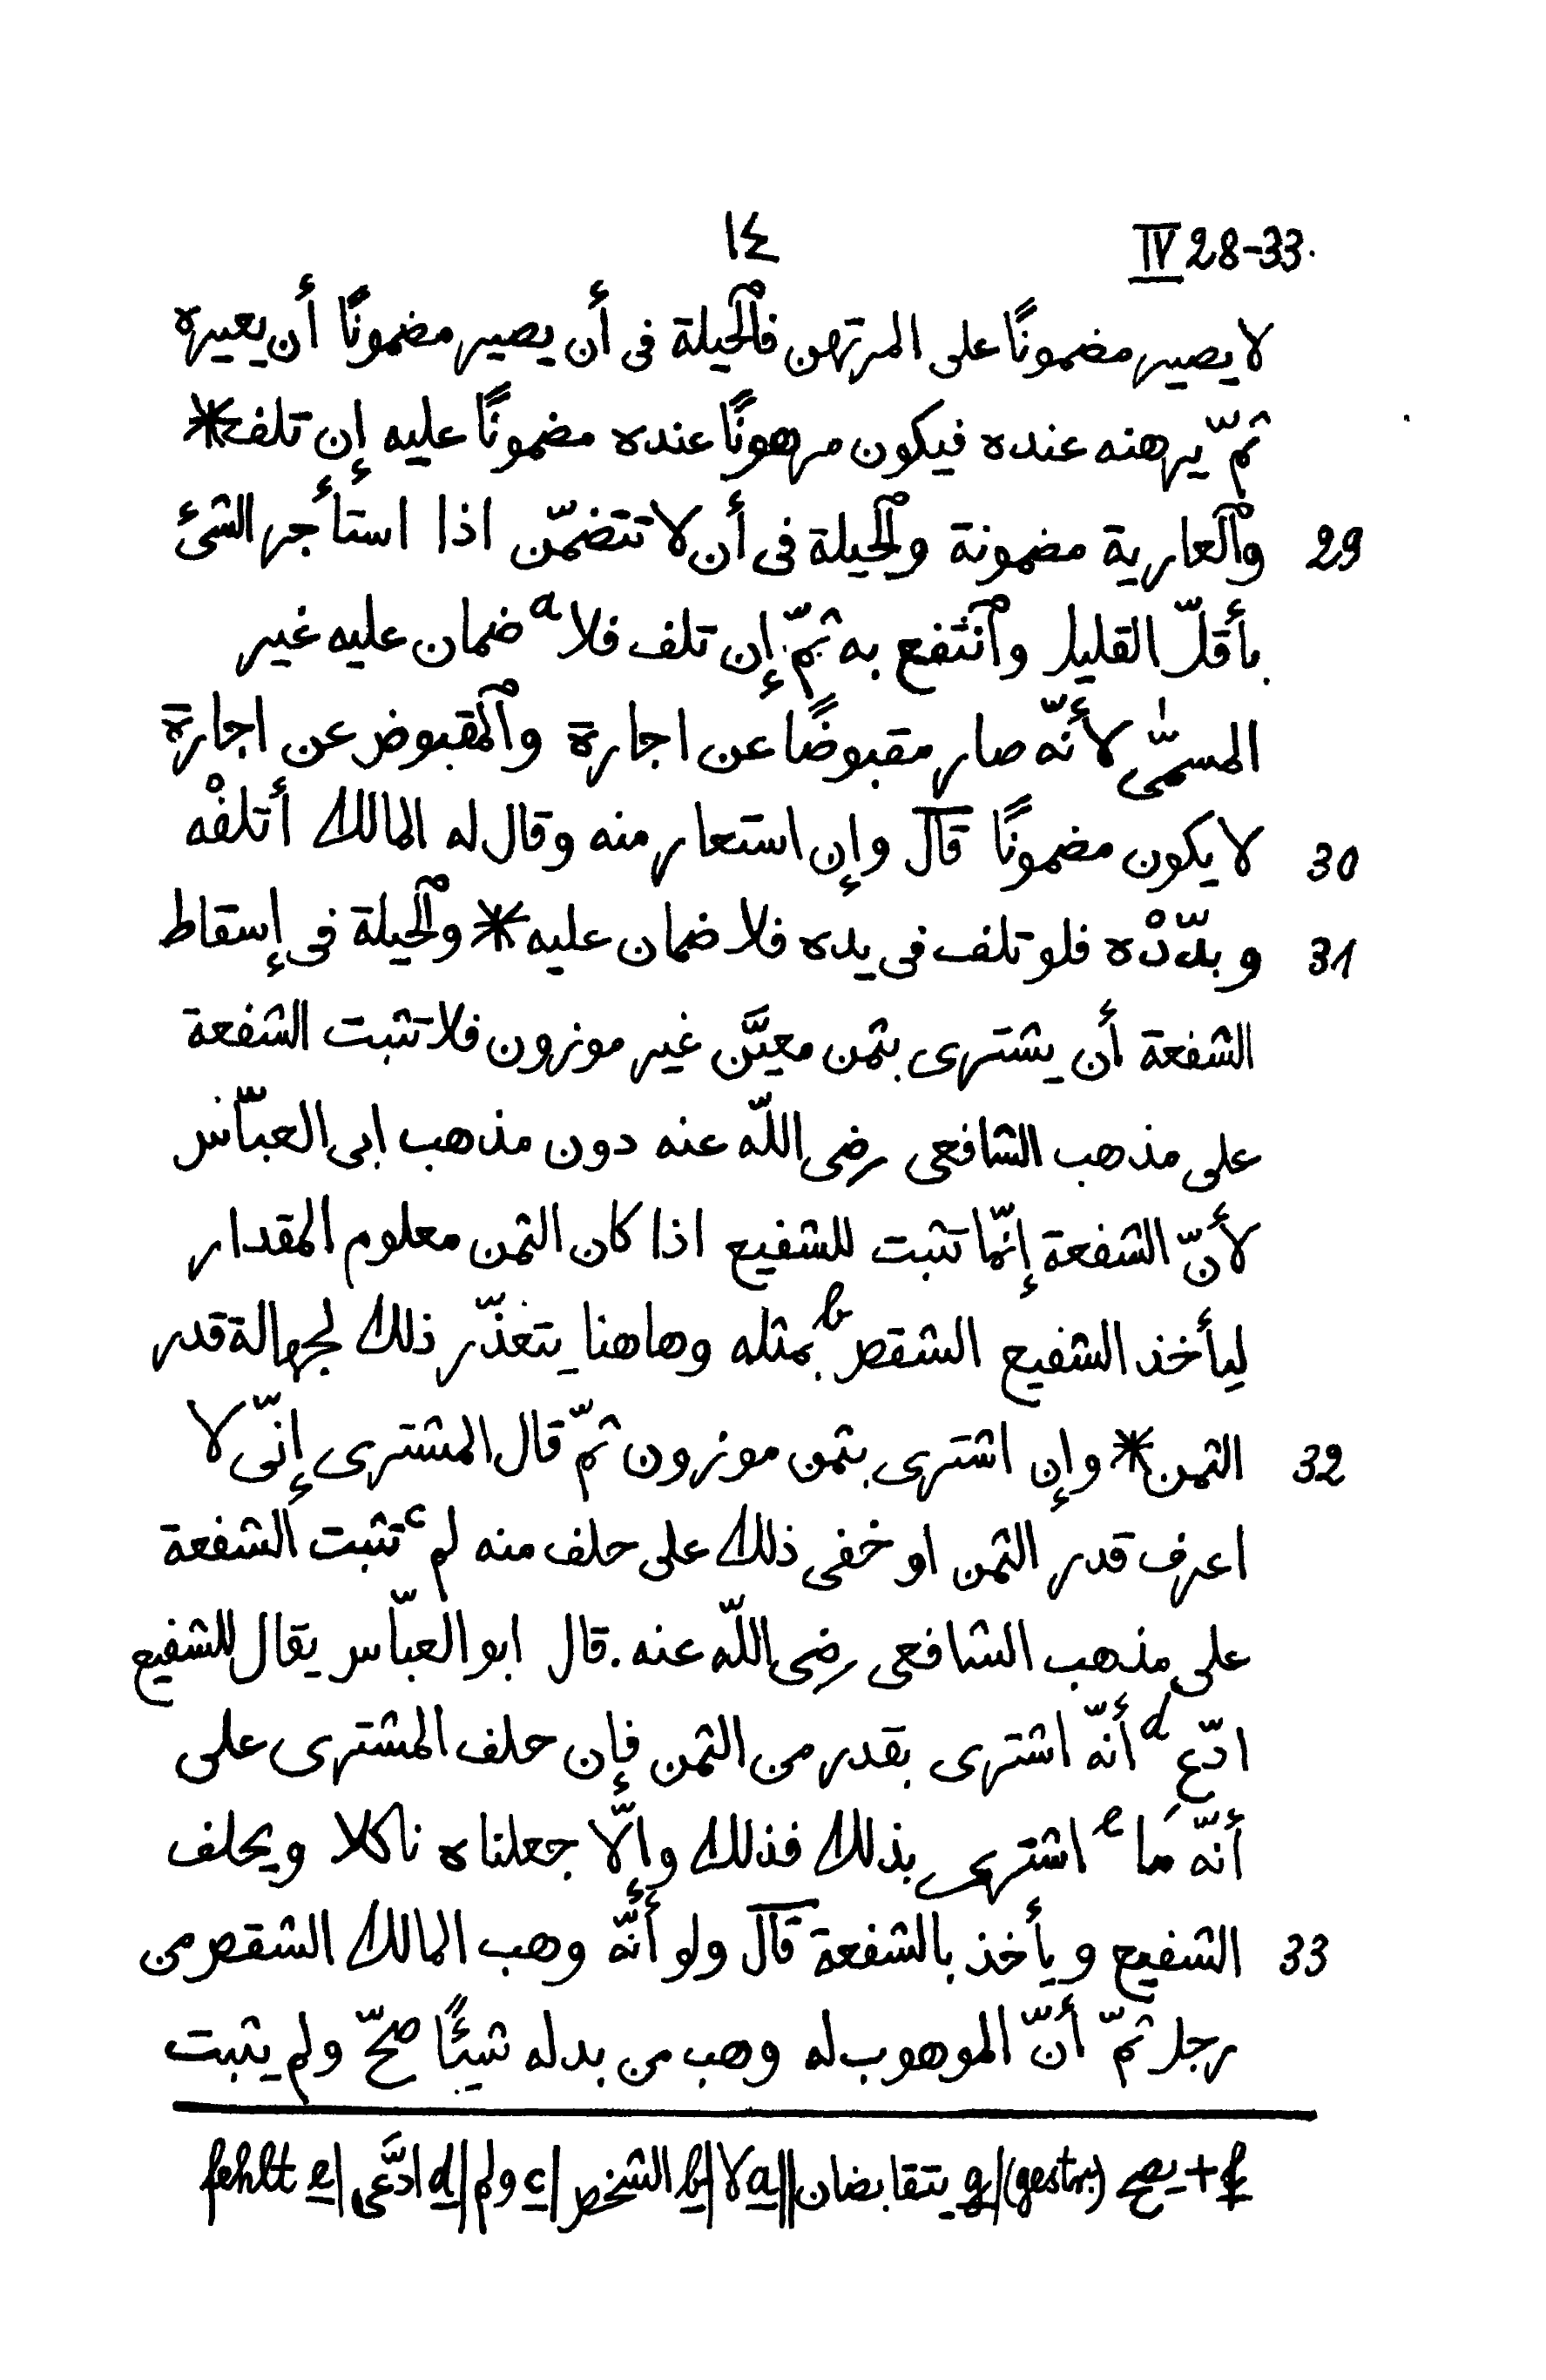 ١٤ IV 28-33.
لا يصير مضمونًا على المرتهن فٱلحيلة فى أن يصير مضمونًا أن يعيره
ثمّ يرهنه عنده فيكون مرهونًا عنده مضمونًا عليه إن تلف *
29 وٱلعارية مضمونة وٱلحيلة فى أن لا تتضمّن اذا استأجر الشئ
بأقلّ القليل وٱنتفع به ثمّ إن تلف فلا a ضمان عليه غير
المسمّى لأنّه صار مقبوضًا عن اجارة وٱلمقبوض عن اجارة
30 لا يكون مضمونًا قال وإن استعار منه وقال له المالك أتلفْه
31 وبدّدْه فلو تلف فى يده فلا ضمان عليه * وٱلحيلة فى إسقاط
الشفعة أن يشترى بثمن معيَّن غير موزون فلا تثبت الشفعة
على مذهب الشافعى رضى اللّه عنه دون مذهب ابى العبّاس
لأنّ الشفعة إنّما تثبت للشفيع اذا كان الثمن معلوم المقدار
ليأخذ الشفيع الشقص b بمثله وهاهنا يتعذّر ذلك لجهالة قدر
32 الثمن * وإن اشترى بثمن موزون ثمّ قال المشترى إنّى لا
اعرف قدر الثمن او خفى ذلك على حلف منه لم c تثبت الشفعة
على مذهب الشافعى رضى اللّه عنه. قال ابو العبّاس يقال للشفيع
ادّع d أنّه اشترى بقدر من الثمن فإن حلف المشترى على
أنّه مَا e اشترى بذلك فذلك وإلّا جعلناه ناكلا ويحلف
33 الشفيع ويأخذ بالشفعة قال ولو أنّه وهب المالك الشقص من
رجل ثمّ أنّ الموهوب له وهب من بدله شيئًا صحّ ولم يثبت
f + يصح (gestr.) | g يتقابضان || a لا | b الشخص | c ولم | d ادَّعى | e fehlt